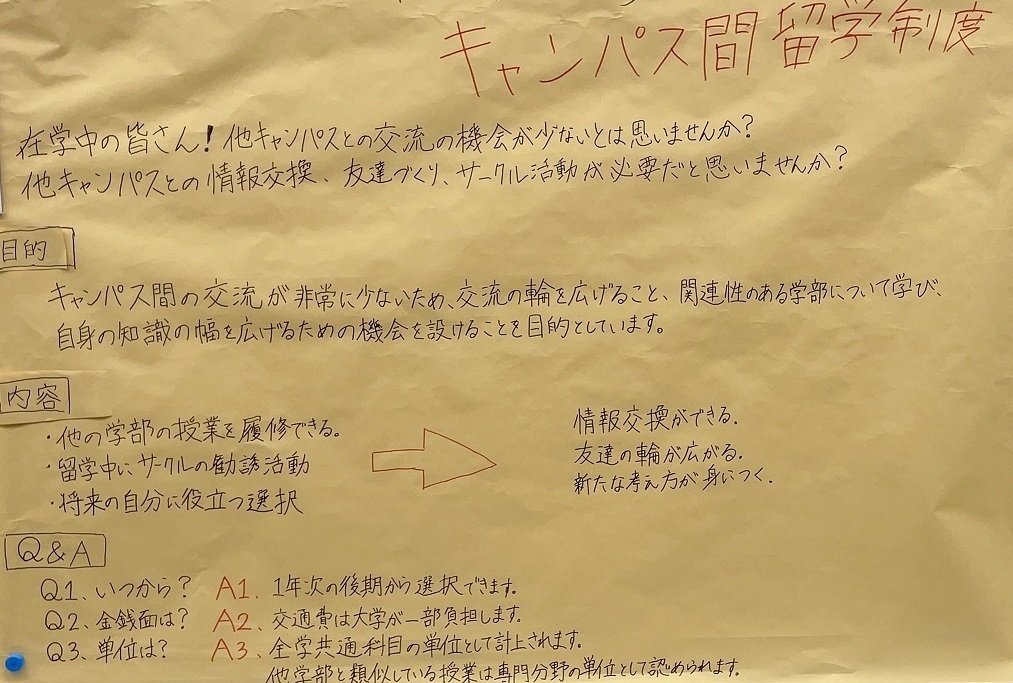 キャンパス間留学制度
在学中の皆さん！他キャンパスとの交流の機会が少ないとは思いませんか？
他キャンパスとの情報交換、友達づくり、サークル活動が必要だと思いませんか？
目的
キャンパス間の交流が非常に少ないため、交流の輪を広げること、関連性のある学部について学び、
自身の知識の幅を広げるための機会を設けることを目的としています。
内容
・他の学部の授業を履修できる。
・留学中にサークルの勧誘活動
・将来の自分に役立つ選択
情報交換ができる.
友達の輪が広がる.
新たな考え方が身につく.
Q&A
Q1、いつから？ A1、1年次の後期から選択できます。
Q2、金銭面は？ A2、交通費は大学が一部負担します。
Q3、単位は？ A3、全学共通科目の単位として計上されます。
他学部と類似している授業は専門分野の単位として認められます。